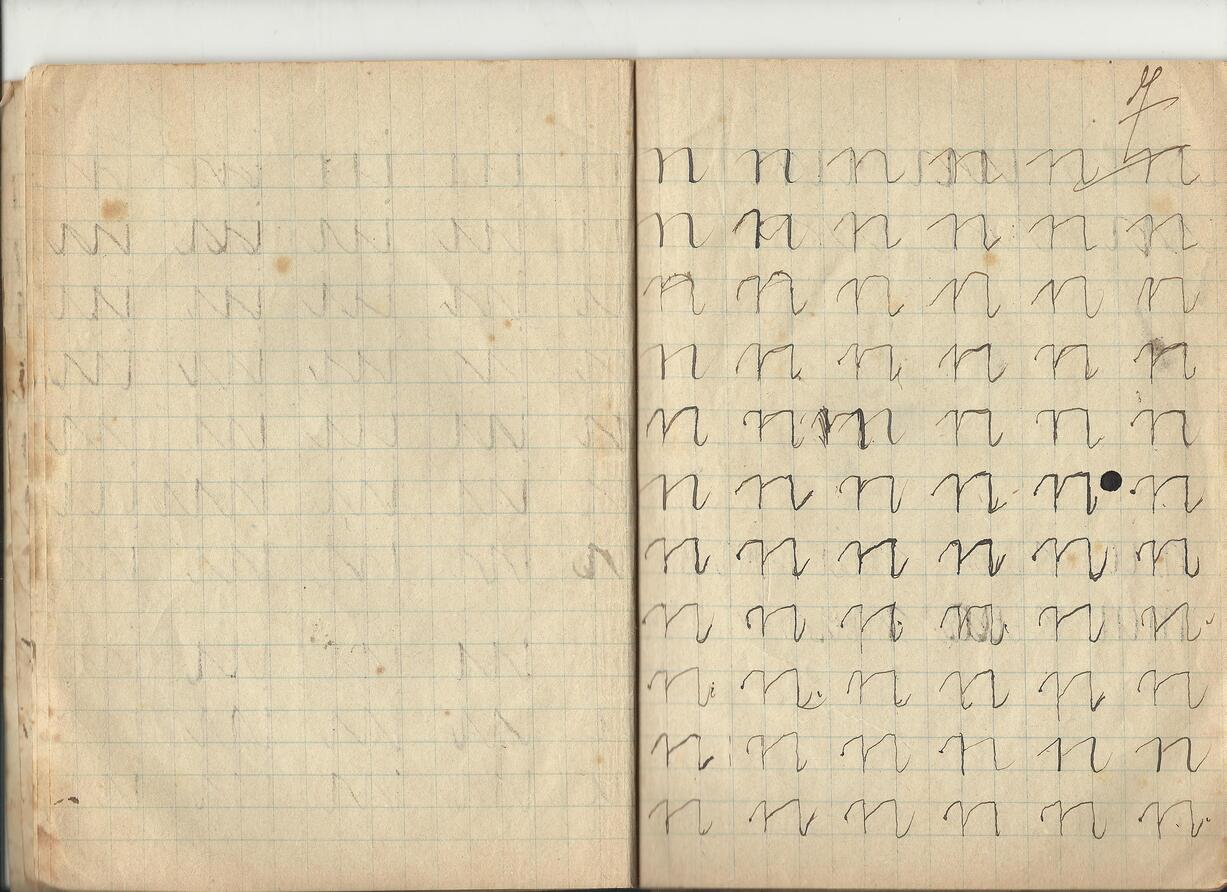 n n n n n n
n n n n n n
n n n n n n
n n n n n n
n n n n n n n
n n n n n n
n n n n n n
n n n n n n
n n n n n n
n n n n n n
n n n n n n